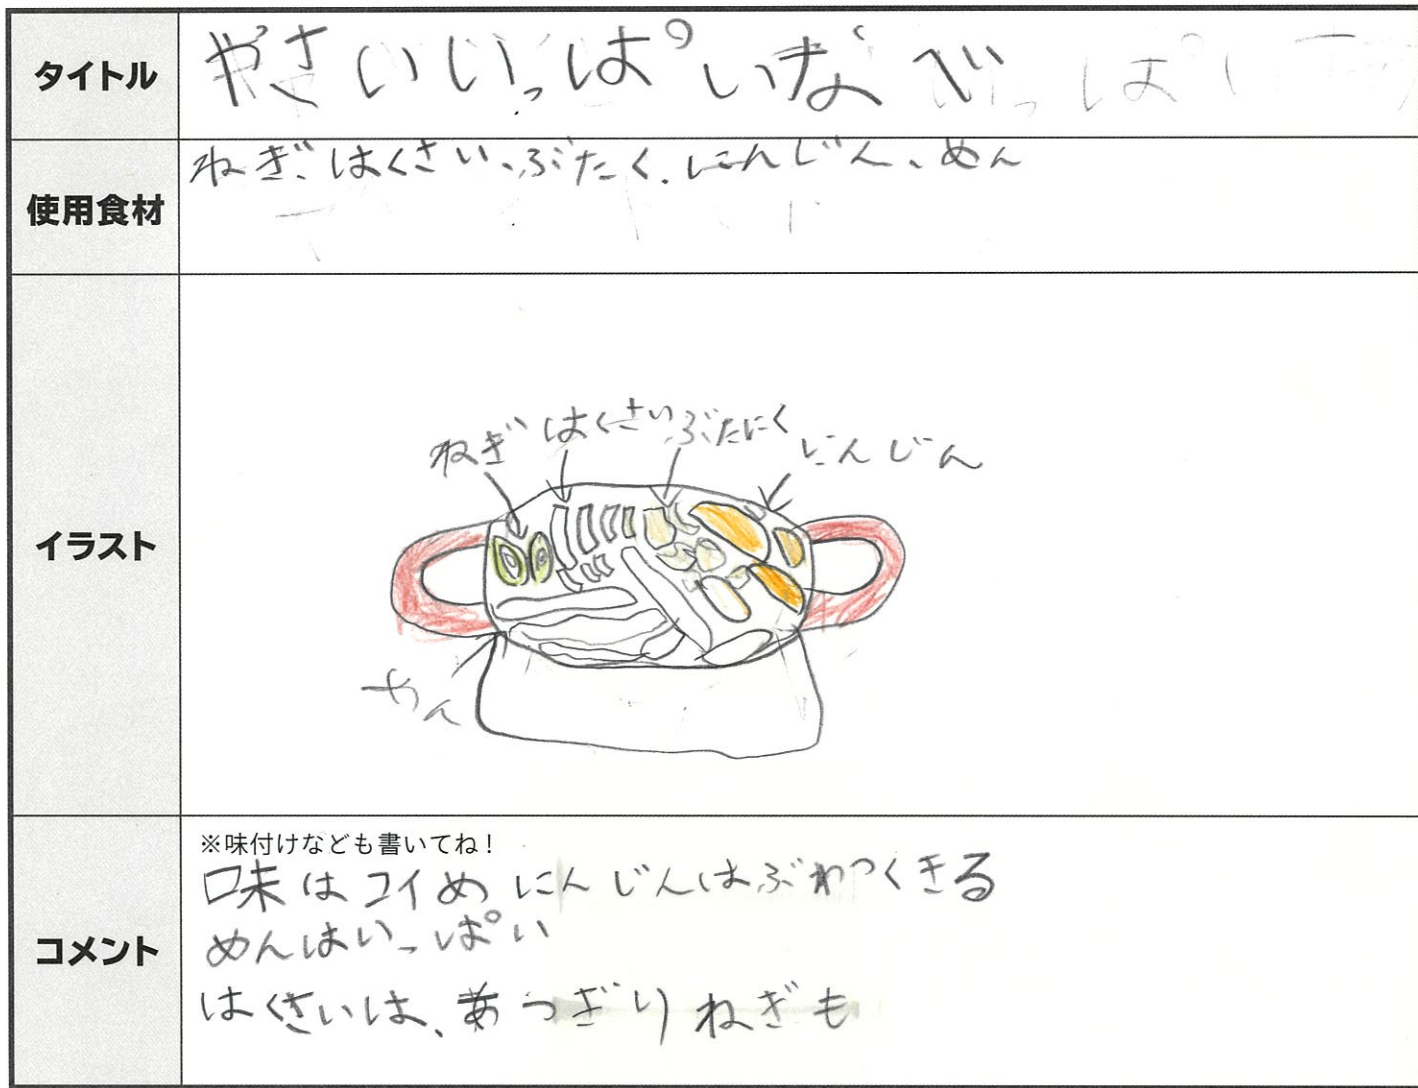 タイトル
やさいいっぱいなべ
使用食材
ねぎ、はくさい、ぶたく、にんじん、めん
イラスト
ねぎ
はくさい
ぶたにく
にんじん
めん
コメント
※味付けなども書いてね!
味はコイめ にんじんはぶわつくきる
めんはいっぱい
はくさいは、あつぎりねぎも